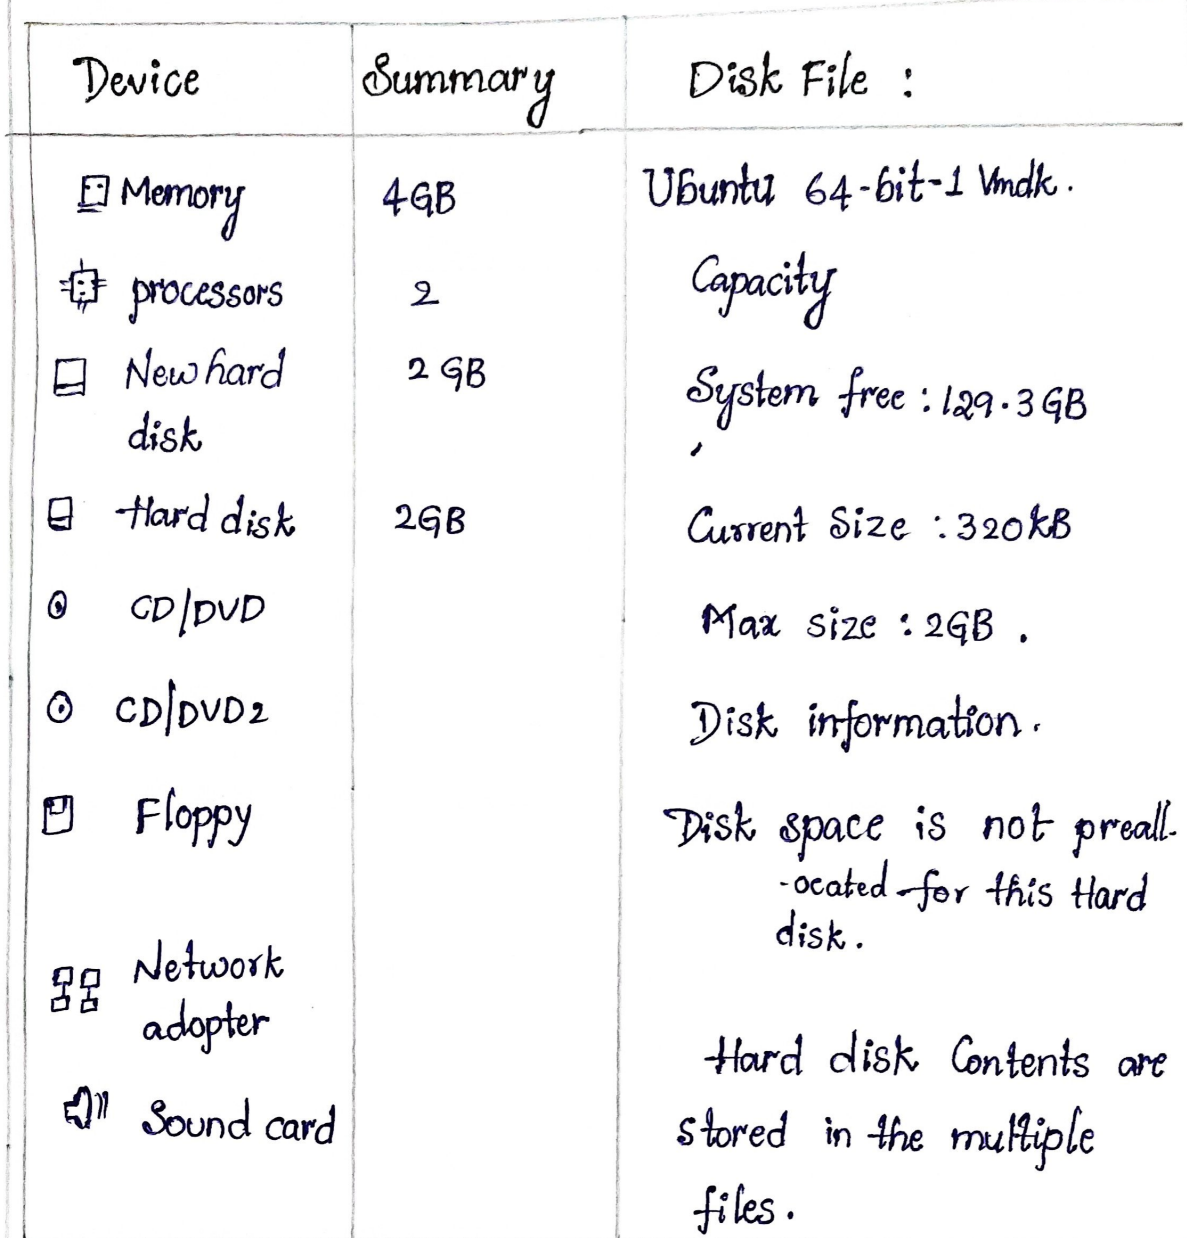 Device Summary Disk File :
Memory 4GB Ubuntu 64-bit-1 Vmdk.
processors 2 Capacity
New hard 2 GB System free : 129.3 GB
disk
Hard disk 2GB Current Size : 320kB
CD/DVD Max size : 2GB .
CD/DVD2 Disk information.
Floppy Disk space is not preall-
-ocated for this Hard
disk.
Network
adopter
Hard disk Contents are
Sound card stored in the multiple
files.